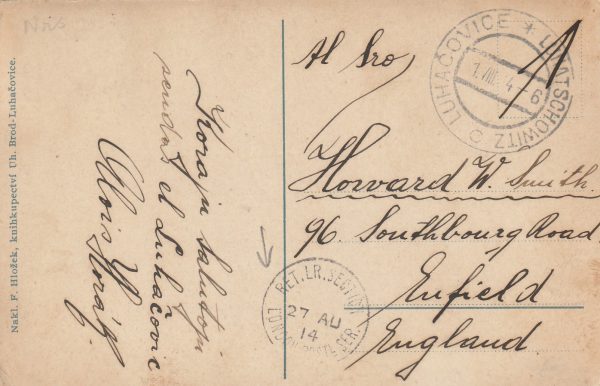 Nakl. F. Hložek, knihkupectví Uh. Brod-Luhačovice.
Korajn salutojn
sendas el Luhačovic
Alois
Al Sro
Howard W. Smith
96 Southbourg Road
Enfield
England
LUHAČOVICE * LUHATSCHOWITZ
1.VIII.14-6
RET. LR. SECTION
27 AU
14
LONDON